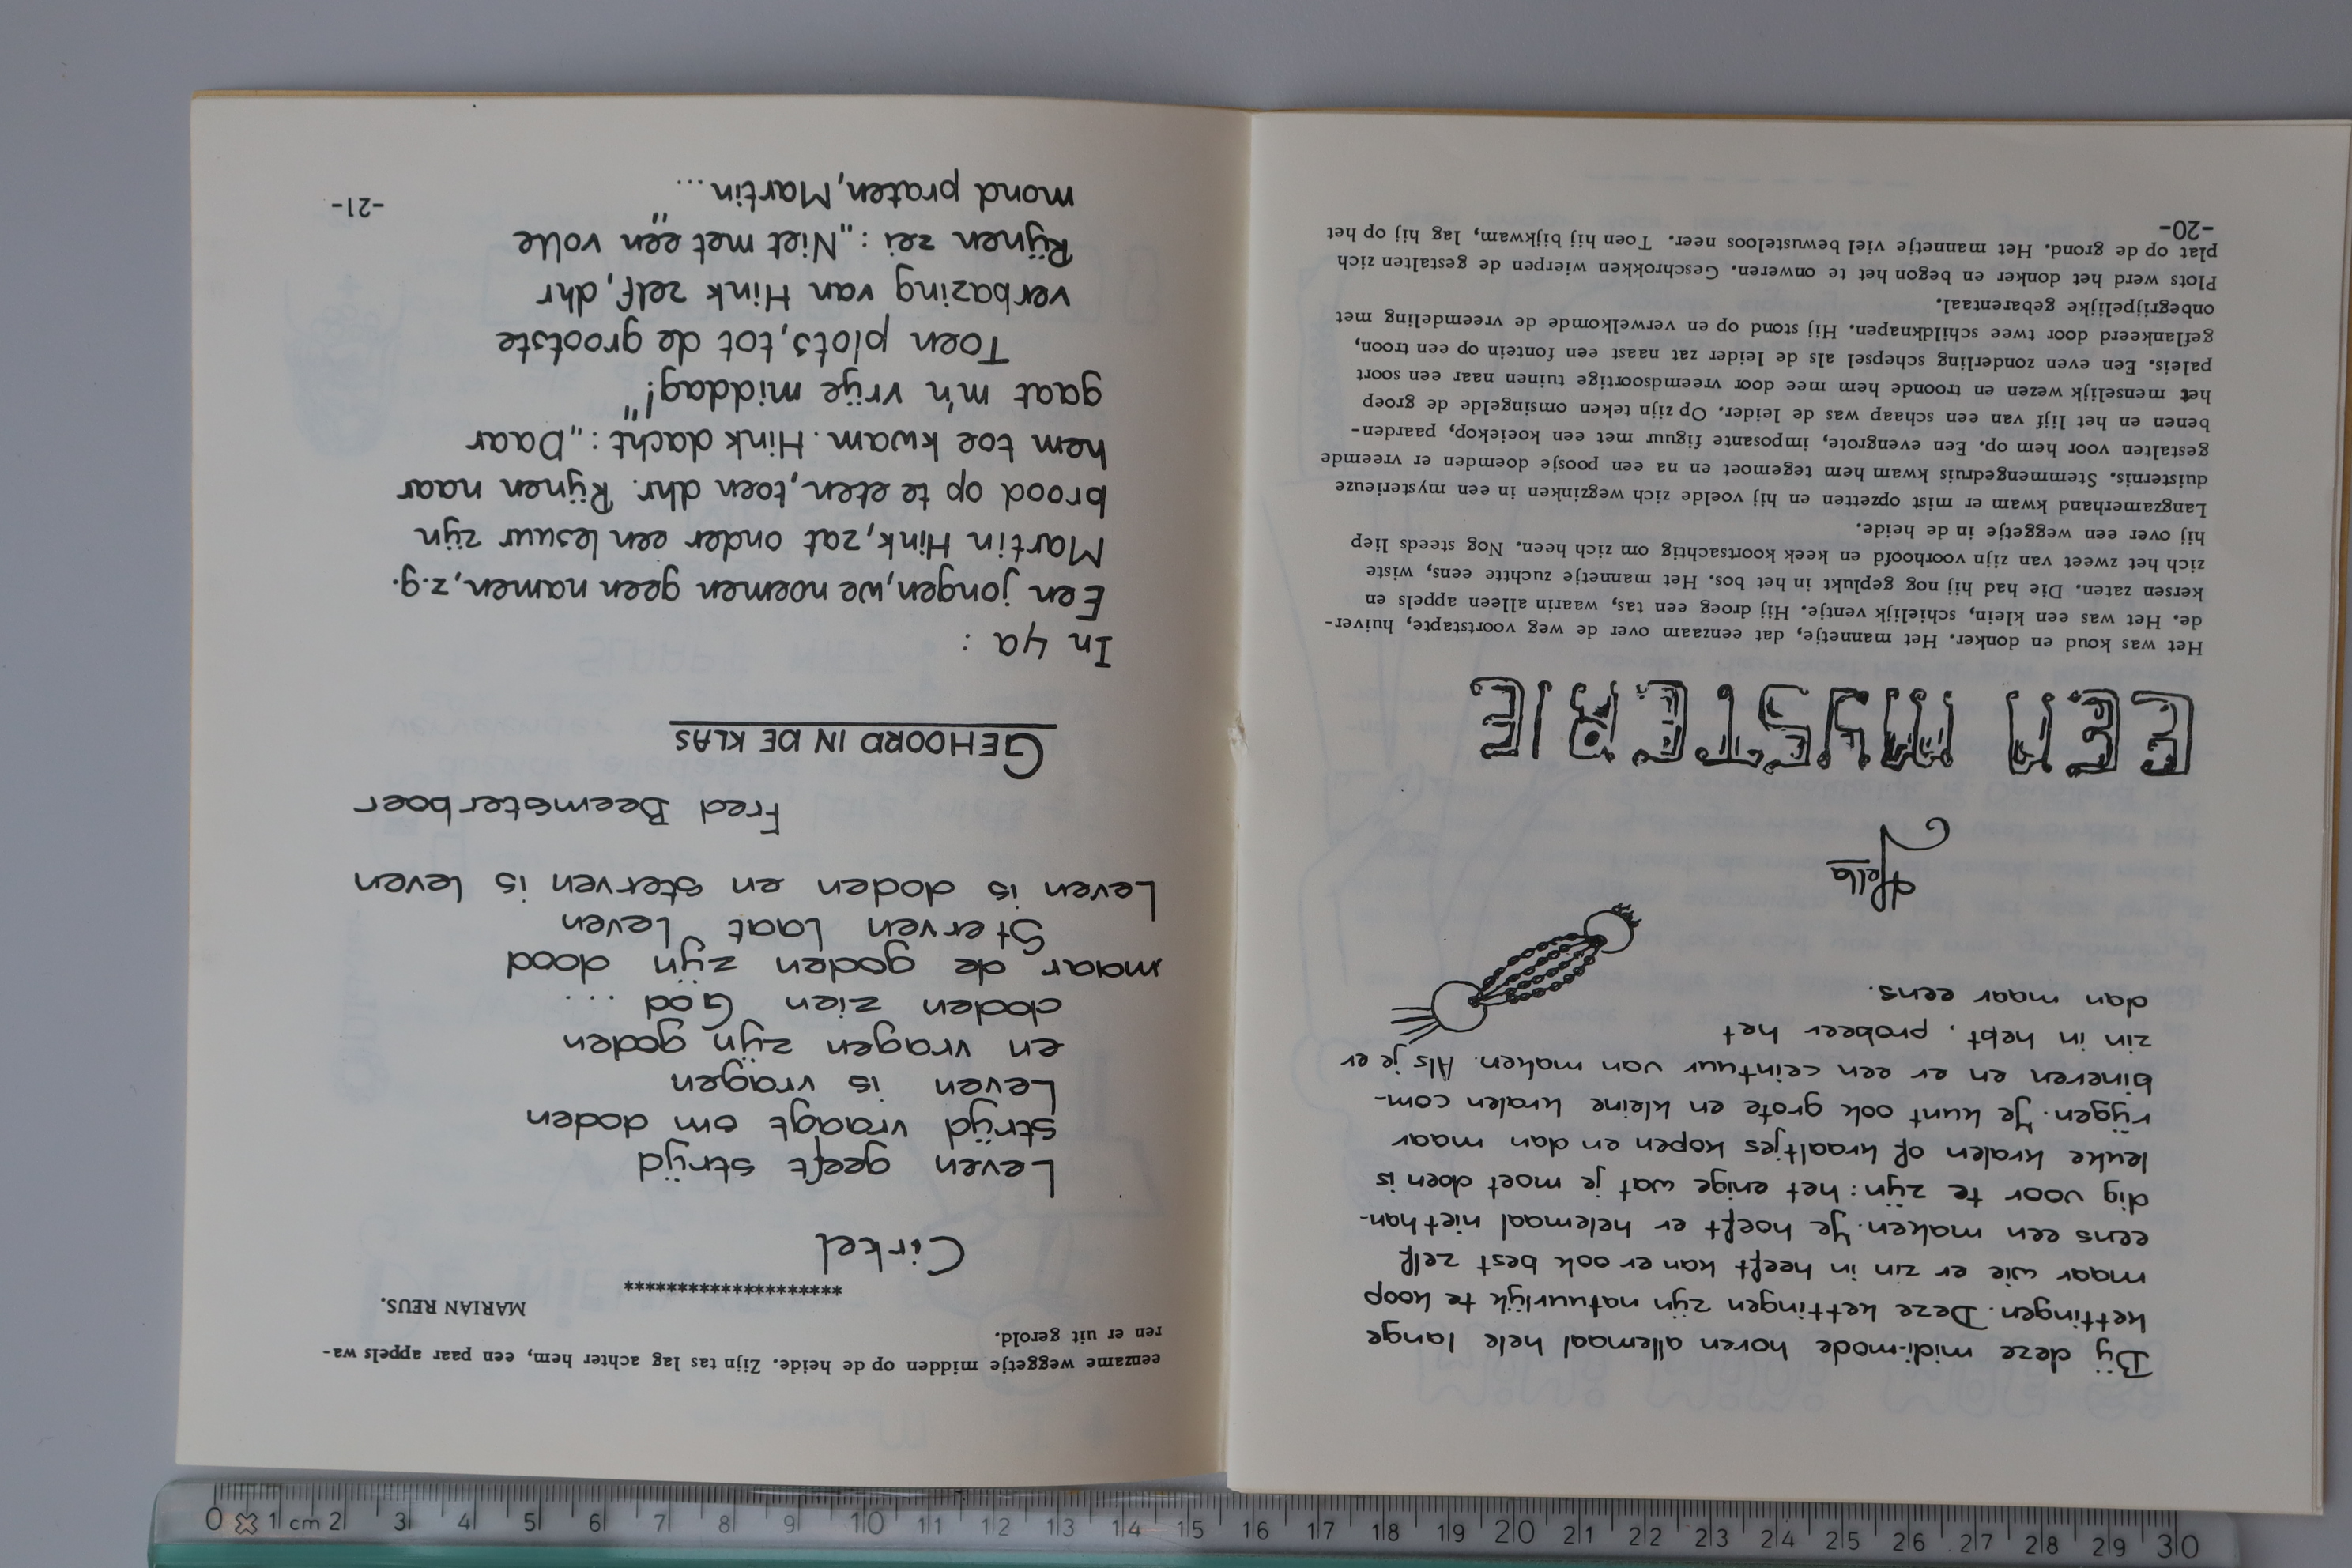 Bij deze midi-mode horen allemaal hele lange
kettingen. Deze kettingen zijn natuurlijk te koop
maar wie er zin in heeft kan er ook best zelf
eens een maken. Je hoeft er helemaal niet han-
dig voor te zijn: het enige wat je moet doen is
leuke kralen of kraaltjes kopen en dan maar
rijgen. Je kunt ook grote en kleine kralen com-
bineren en er een ceintuur van maken. Als je er
zin in hebt, probeer het
dan maar eens.
Hella
EEN MYSTERIE
Het was koud en donker. Het mannetje, dat eenzaam over de weg voortstapte, huiver-
de. Het was een klein, schielijk ventje. Hij droeg een tas, waarin alleen appels en
kersen zaten. Die had hij nog geplukt in het bos. Het mannetje zuchtte eens, wiste
zich het zweet van zijn voorhoofd en keek koortsachtig om zich heen. Nog steeds liep
hij over een weggetje in de heide.
Langzamerhand kwam er mist opzetten en hij voelde zich wegzinken in een mysterieuze
duisternis. Stemmengedruis kwam hem tegemoet en na een poosje doemden er vreemde
gestalten voor hem op. Een evengrote, imposante figuur met een koeiekop, paarden-
benen en het lijf van een schaap was de leider. Op zijn teken omsingelde de groep
het menselijk wezen en troonde hem mee door vreemdsoortige tuinen naar een soort
paleis. Een even zonderling schepsel als de leider zat naast een fontein op een troon,
geflankeerd door twee schildknapen. Hij stond op en verwelkomde de vreemdeling met
onbegrijpelijke gebarentaal.
Plots werd het donker en begon het te onweren. Geschrokken wierpen de gestalten zich
plat op de grond. Het mannetje viel bewusteloos neer. Toen hij bijkwam, lag hij op het
-20-
eenzame weggetje midden op de heide. Zijn tas lag achter hem, een paar appels wa-
ren er uit gerold.
MARIAN REUS.
********************
Cirkel
Leven geeft strijd
strijd vraagt om doden
Leven is vragen
en vragen zijn goden
doden zien God ...
maar de goden zijn dood
Sterven laat leven
Leven is doden en sterven is leven
Fred Beemsterboer
GEHOORD IN DE KLAS
In 4a :
Een jongen, we noemen geen namen, z.g.
Martin Hink, zat onder een lesuur zijn
brood op te eten, toen dhr. Rijnen naar
hem toe kwam. Hink dacht: „Daar
gaat m'n vrije middag!"
Toen plots, tot de grootste
verbazing van Hink zelf, dhr
Rijnen zei: „Niet met een volle
mond praten, Martin"...
-21-
0 1 cm 2 3 4 5 6 7 8 9 10 11 12 13 14 15 16 17 18 19 20 21 22 23 24 25 26 27 28 29 30